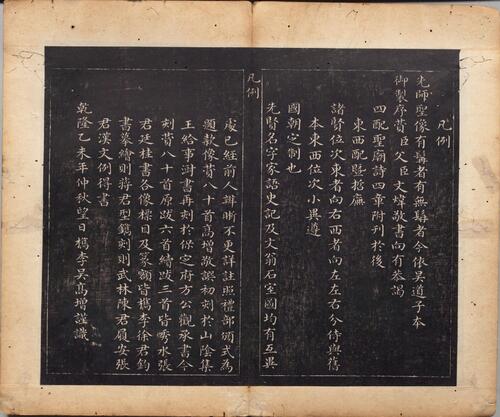 凡例
先師聖像有講者有無疑者今依吳道子本
御製序贊臣父臣文煒敬書向有恭謁
四配聖廟詩四章附刊於後
東西配暨
諸賢位次東者向右西者向左左右分侍與舊
本東西位次小異遵
國朝之制也
先賢名字家語史記及文翁石室圖均有互異
凡例
處已經前人辯晰不更詳註照禮部頒式為
題款像贊八十首高增敬譔初刻於山陰集
王給事澍書再刻於保定府方公觀承書今
刻贊八十首原跋六首續跋三首皆秀水張
君廷柱書各像標目及篆額皆檇李徐君鈞
書摹繪則蔣君型鐫刻則武林陳君履安張
君漢文例得書
乾隆乙未年仲秋望日檇李吳高增謹識